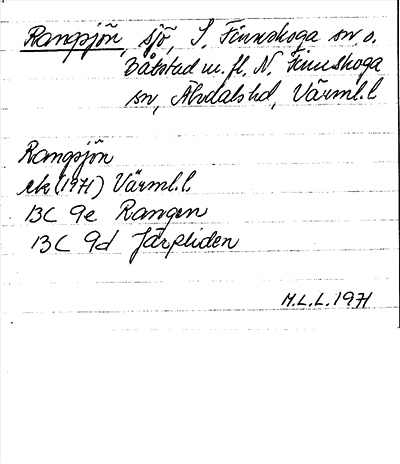 Rangsjön, sjö, S. Finnskoga sn o.
Båtstad m. fl. N. Finnskoga
sn, Älvdals hd, Värml. l
Rangsjön
ek (1971) Värml. l.
13C 9e Rangen
13C 9d Järpliden
M.L.L. 1971